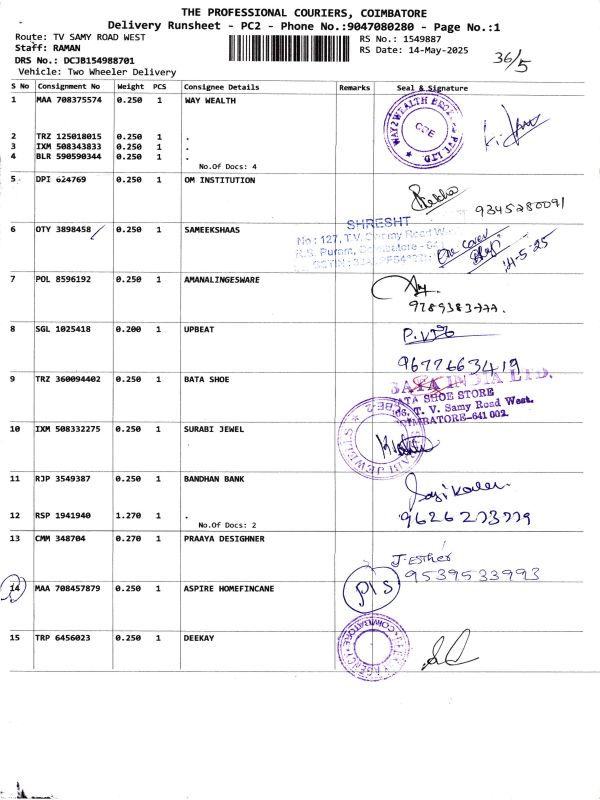 THE PROFESSIONAL COURIERS, COIMBATORE
Delivery Runsheet - PC2 - Phone No.:9047080280 - Page No.:1
Route: TV SAMY ROAD WEST RS No.: 1549887
Staff: RAMAN RS Date: 14-May-2025
36/5
DRS No.: DCJB154988701
Vehicle: Two Wheeler Delivery
S No Consignment No Weight PCS Consignee Details Remarks Seal & Signature
1 MAA 708375574 0.250 1 WAY WEALTH
WAY2WEALTH PVT LTD. CBE
2 TRZ 125018015 0.250 1 .
3 IXM 508343833 0.250 1 .
4 BLR 590590344 0.250 1 .
No.Of Docs: 4
5 DPI 624769 0.250 1 OM INSTITUTION
Rekha
9345280091
6 OTY 3898458 0.250 1 SAMEEKSHAAS
SHRESHT
No : 127, T.V. Samy Road
R.S. Puram, Coimbatore - 641
One cover
14-5-25
7 POL 8596192 0.250 1 AMANALINGESWARE
9789383777.
8 SGL 1025418 0.200 1 UPBEAT
9677663419
9 TRZ 360094402 0.250 1 BATA SHOE
BATA INDIA LTD.
BATA SHOE STORE
T. V. Samy Road West.
COIMBATORE-641 002.
10 IXM 508332275 0.250 1 SURABI JEWEL
11 RJP 3549387 0.250 1 BANDHAN BANK
12 RSP 1941940 1.270 1 .
No.Of Docs: 2
13 CMM 348704 0.270 1 PRAAYA DESIGHNER
J. Esther
9539533993
14 MAA 708457879 0.250 1 ASPIRE HOMEFINCANE
P/S
15 TRP 6456023 0.250 1 DEEKAY